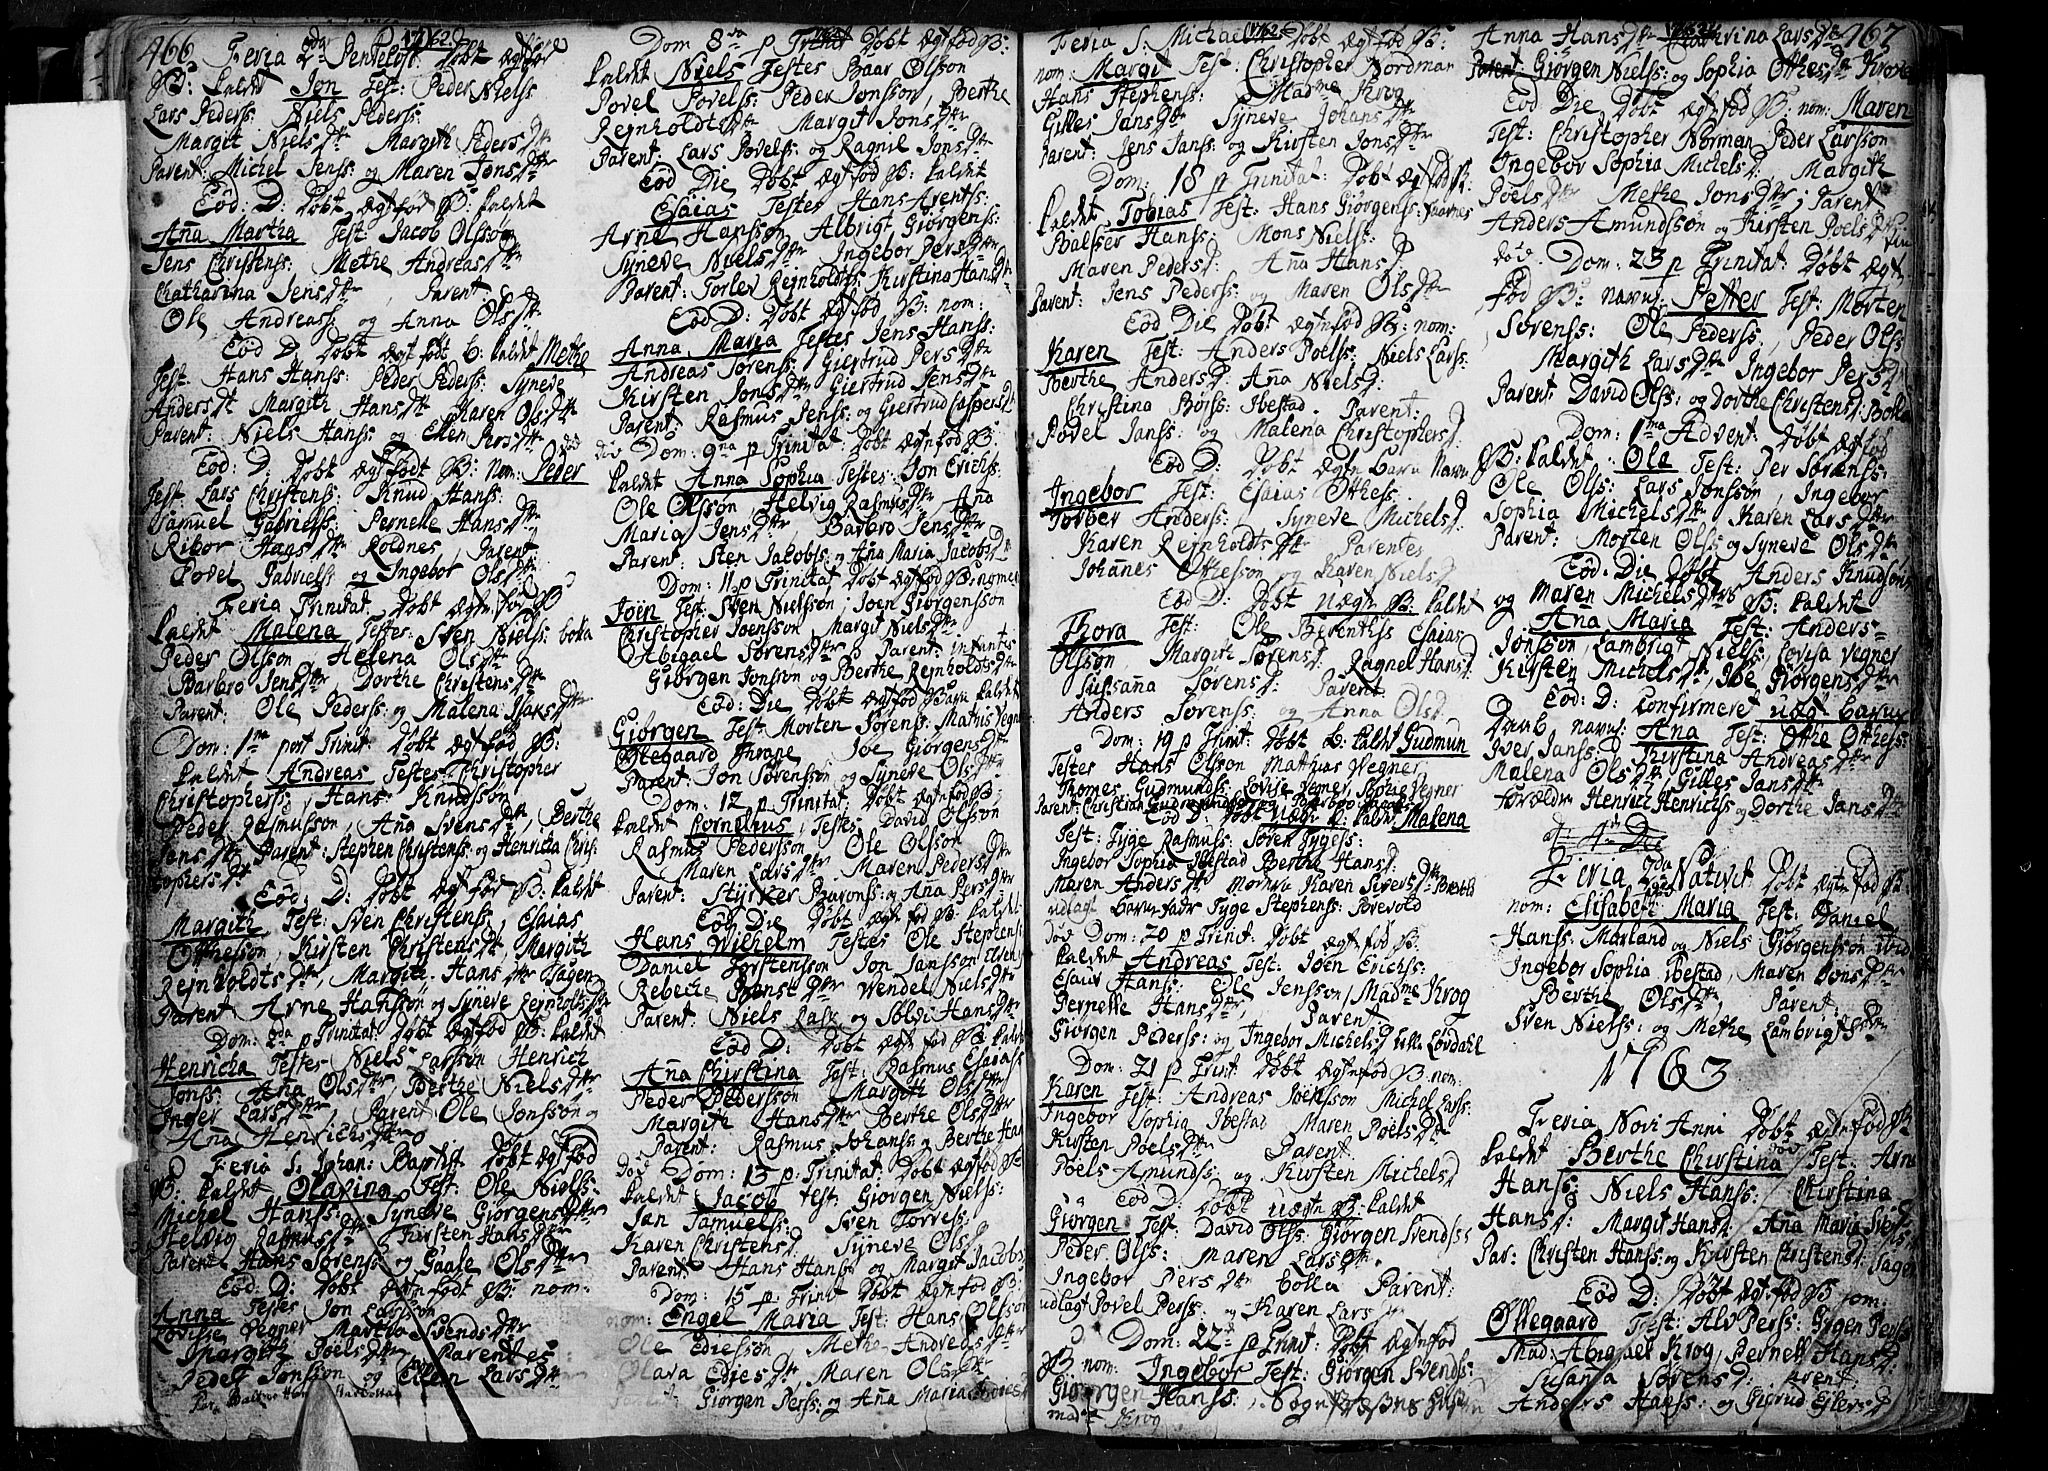 466
1762
Feria 2da Pentecost: Døbt Ægtefød
B: kaldet Jon Test: Peder Nielss
Lars Pederss: Niels Pederss:
Margit Nielsdtr Margith Pedersdtr
Parent: Michel Jenss: og Maren Jonsdtr
Eod: D: Døbt Ægtefød B: kaldet
Aña Martha Test: Jacob Olsson
Jens Christenss: Methe Andreasdtr
Chatharina Jensdtr, Parent:
Ole Andreass: og Anna Olsdtr
Eod D Døbt Ægtefødt b: kaldet Methe
Test: Hans Hanss: Peder Pederss: Syneve
Andersdtr Margith Hansdtr Karen Olsdtr
Parent: Niels Hanss: og Ellen
Eod: D: Døbt Ægtefødt B: nom: Peder
Test Lars Christenss: Knud Hanss:
Samuel Gabrielss: Pernelle Hansdtr
Ribor Hansdtr Roldnes, Parent:
Povel Gabrielss og Ingebor Olsdtr
Feria Trinitat: Døbt ægtefød B
kaldet Malena Testes: Sven Nielss: bolta
Peder Olsson, Helena Olsdtr
Barbro Jensdtr, Dorthe Christensdtr
Parent: Ole Pederss: og Malena Isaksdtr
Dom: 1ma post Trinit: Døbt ægtefød B:
kaldet Andreas Testes Christopher
Christopherss, Hans Knudsson
Peder Rasmusson, Aña Svensdtr, Berthe
Jensdtr Parent: Stephen Christenss: og Henricha Chris:
tophersdtr
Eod, D: Døbt ægtefød B: kaldet
Margith Test: Sven Christenss, Esaias
Otthesson, Kirsten Christensdtr, Margith
Rejnholdtsdtr, Margith Hansdtr Sagen
Parent Arne Hansson og Syneve Rejnholdsdtr
Dom: 2da p Trinitat: Døbt ægtefød B: kaldet
Henricha Testes Niels Larsson Henrich
Jonss: Aña Olsdtr, Berthe Nielsdtr
Inger Larsdtr, Parent Ole Jonsson og
Aña Henrichsdtr
Feria S: Johan: Baptist Døbt ægtefød
B: kaldet Olavina Test: Ole Nielss:
Michel Hanss: Syneve Giørgensdtr
Helvig Rasmusdtr Kirsten Hansdtr
Parent Hans Sørenss og Olsdtr
Eod: D: Døbt Ægtefødt B: nom:
Anna Testes Jon Larsson
Lovisse Vegner Martha Svendsdtr
Margith Poelsdtr Parentes
Peder Jonsson og Ellen Larsdtr
Dom 8va p Trinit Døbt ægtefød B:
kaldet Niels Testes Baar Olsson
Povel Povelss: Peder Jonsson, Berthe
Rejnholdtsdtr Margit Jonsdtr
Parent: Lars Povelss: og Ragnil Jonsdtr
Eod Die Døbt ægtefød B: kaldet
Esaias Testes Hans Arentss:
Arne Hansson Albrigt Giørgenss:
Syneve Nielsdtr Ingebor Persdtr
Parent: Torlev Rejnholdtss: Kirstina Hansdtr
Eod D: Døbt ægtefød B: nom:
Anna Maria Testes Jens Hanss:
Andreas Sørenss: Giertrud Persdtr
Kirsten Jonsdtr Giertrud Jensdtr
Parent: Rasmus Jenss: og Giertrud Caspersdtr
død Dom: 9na p Trinitat Døbt ægtefød B:
kaldet Anna Sophia Testes: Jon Erichss:
Ole Olsson, Helvig Rasmusdtr Aña
Maria Jensdtr, Barbro Jensdtr
Parent: Sten Jakobss og Aña Maria Jacobsdtr
Dom: 11 p Trinitat Døbt ægtefød B: nomme
Joen Test: Sven Nielsson, Joen Giørgensson
Christopher Joensson, Margit Nielsdtr
Abigael Sørensdtr, Parent: infantes
Giørgen Jonsson og Berthe Rejnholdtsdtr
Eod: Die Døbt Ægtefød Barn kaldet
Giørgen Test: Morten Sørenss: Mathis Vegner
Øllegaard Throne Joe Giørgensdtr
Parent: Jon Sørensson og Syneve Olsdtr
Dom: 12 p Trinitat: Døbt Ægtefød B:
kaldet Cornelius, Testes David Olsson
Rasmus Pedersson Ole Olsson
Maren Larsdtr Maren Pedersdtr
Parent: Styrker Baronss: og Aña Persdtr
Eod Die Døbt ægtefød B: kaldet
Hans Wilhelm Testes Ole Stephenss
Daniel Torstensson Jon Jansson
Rebeche Wendel Nielsdtr
Parent: Niels og Sølvi Hansdtr
Eod D: Døbt Ægtefød B: kaldet
Aña Chirstina Test: Rasmus Esaiass
Peder Pedersson Margith Olsdtr
Margith Hansdtr Berthe Olsdtr
Parent: Rasmus Johanss: og Berthe Hans
død Dom: 13 p: Trinitat: Døbt ægtefød B
kaldet Jacob test: Giørgen Nielss:
Jan Samuelss: Sven Torress:
Karen Christensd Syneve Olsd
Parent: Hans Hanss og Margit Jacobs
Dom: 15 p: Trinit Døbt Ægtefød B:
nom: Engel Maria Test: Hans Olsson
Ole Ediesson, Methe Andreasdtr
Olava Ediesdtr, Maren Olsdtr
Giørgen Perss: og Aña Maria
Feria S: Michaelis 1762 Døbt ægtefød B:
nom: Margit Test: Christopher Nordman
Hans Stephenss: Madme Krog
Gilles Jansdtr Syneve Johansdtr
Parent: Jens Janss: og Kirsten Jonsdtr
Dom: 18 p Trinitat: Døbt ægtefød B:
kaldet Tobias Test: Hans Giørgenss:
Balsser Hanss: Mons Nielss:
Maren Pedersd: Aña Hansd
Parent: Jens Pederss: og Maren Olsdtr
Eod Die Døbt Ægtefød B: nom:
Karen Test: Anders Poelss: Niels Larss:
Berthe Andersd: Aña Nielsd:
Christina Børss: Ibestad. Parent:
Povel Janss: og Malena Christophersd
Eod D: Døbt Ægte barn Navn
Ingebor Test: Esaias Otthess.
Anderss: Syneve Michelsd:
Karen Rejnholdtsdtr Parentes
Johañes Otthesson og Karen Nielsd
Eod D: Døbt Uægte B: kaldet
Thora Test: Ole Berenthss Esaias
Olsson, Margith Sørensd: Ragnel Hansd
Sussaña Sørensd: Parent:
Anders Sørenss: og Anna Olsd:
Dom: 19 p Trinit: Døbt b: kaldet Gudmun
Testes Hans Olsson Mathias Vegner
Thomes Gudmundss: Lovise Vegner, Sophie Vegner
Eod D: Døbt Uægte b: kaldet Malena
Test: Tyge Rasmuss: Søren Tygess:
Ingebor Sophia Ibestad Berthe Hansd:
Maren Andersdtr Karen Siversdtr
udlagt barnefader Tyge Stephenss:
død Dom: 20 p Trinit: Døbt ægtefød B:
kaldet Andreas Test: Joen Erichss:
Hanss: Ole Jensson, Madme Krog
Pernelle Hansdtr, Parent
Giørgen Pederss: og Ingebor Michelsd Lille Løvdahl
Dom: 21 p Trinit: Døbt Ægtefød B: nom:
Karen Test: Andreas Joensson Michel Larss:
Ingebor Sophia Ibestad Maren Poelsdtr
Kirsten Poelsdtr Parent.
Poels Amunds og Kirsten Michelsd
Eod D: Døbt Uægte B: kaldet
Giørgen Test: David Olss: Giørgen Svendss
Peder Olss: Maren Larsdtr.
Ingebor Persdtr bolla Parent:
udlagt Povel Perss: og Karen Larsd
Dom: 22d p Trinit: Døbt ægtefød
B nom: Ingebor Test: Giørgen Svendss:
Giørgen Hanss:
Krog
467
Anna Hansdtr Cathrina Larsdtr
Parent: Giørgen Nielss: og Sophia Otthesdtr Krov
Eod Die Døbt ægtefød B: nom: Maren
Test: Christopher Norman Peder Larsson
Ingebor Sophia Michelsd, Margith
Poelsdtr Methe Jonsdtr, Parent
Anders Amundsson og Kirsten Poelsdtr
død. Dom: 23 p Trinitat: Døbt Ægte
fød B: navn: Petter Test: Morten
Sørenss: Ole Pederss:, Peder Olss
Margith Larsdtr Ingebor Persd
Parent: David Olss: og Dorthe Christensd:
Dom: 1ma Advent: Døbt Ægtefød
B: kaldet: Ole Test: Per Sørenss:
Ole Olss: Lars Jonsson, Ingebor
Sophia Michelsdtr Karen Larsdtr
Parent: Morten Olss og Syneve Olsdtr
Eod: Die Døbt Anders Knudsons
og Maren Michelsdtrs B: kaldet
Aña Maria Test: Anders
Jonsson, Lambrigt Nielss, Lovisa Vegner
Kirsten Michelsdtr, Giørgensdtr
Eod: D: Confirmeret Uæg: barns
Daab navns: Ana Test: Otthe Otthess:
Iver Janss: Kirstina Andreasdtr
Malena Olsdtr Gilles Jansdtr
forældre Henrich Henrichs og Dorthe Jansdtr
Feria 2da Nativit Døbt Ægtefød B:
nom: Elisabeth Maria Test: Daniel
Hanss: Marland og Niels Giørgensson ibid
Ingebor Sophia Ibestad, Maren Jonsdtr
Berthe Olsdtr, Parent:
Sven Nielss: og Methe Lambrigts
1763
Feria Novi Anni Døbt ægtefød B:
kaldet Berthe Chirstina Test: Arne
Hanss: Niels Hanss: Chirstina
Hansd: Margit Hansd: Aña Maria
Par: Christen Hanss: og Kirsten Christensd: Sagen
Eod D: Døbt Ægtefød B nom:
Øllegaard Test: Alv Perss: Ørgen Perss
Mad: Abigael Krog, Pernell Hansd:
Susaña Sørensd: Parent:
Anders Hanss: og Ejlersd